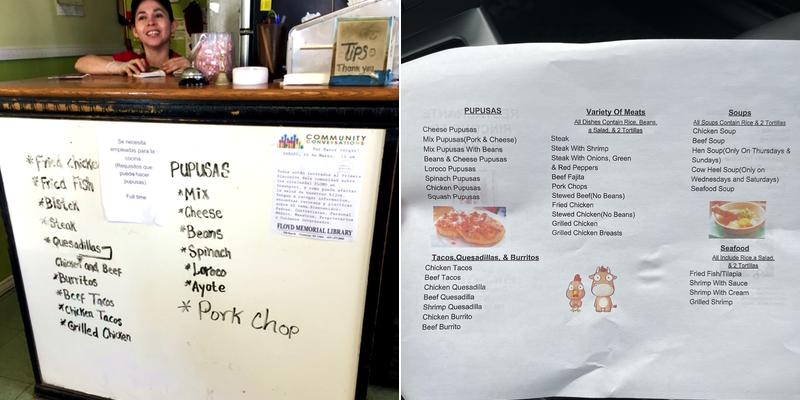 Tips
Thank you
*Fried Chicken
*Fried Fish
*Bisteк
*Steak
*Quesadillas
Chicken and Beef
*Burritos
*Beef Tacos
*Chicken Tacos
*Grilled Chicken
Se necesita
empleadas para la
cocina
(Requisitos que
puede hacer
pupusas)
Full time
PUPUSAS
*Mix
*Cheese
*Beans
*Spinach
*Loroco
*Ayote
*Pork Chop
COMMUNITY
CONVERSATIONS
FLOYD MEMORIAL LIBRARY
PUPUSAS
Cheese Pupusas
Mix Pupusas(Pork & Cheese)
Mix Pupusas With Beans
Beans & Cheese Pupusas
Loroco Pupusas
Spinach Pupusas
Chicken Pupusas
Squash Pupusas
Tacos,Quesadillas, & Burritos
Chicken Tacos
Beef Tacos
Chicken Quesadilla
Beef Quesadilla
Shrimp Quesadilla
Chicken Burrito
Beef Burrito
Variety Of Meats
All Dishes Contain Rice, Beans,
a Salad, & 2 Tortillas
Steak
Steak With Shrimp
Steak With Onions, Green
& Red Peppers
Beef Fajita
Pork Chops
Stewed Beef(No Beans)
Fried Chicken
Stewed Chicken(No Beans)
Grilled Chicken
Grilled Chicken Breasts
Soups
All Soups Contain Rice & 2 Tortillas
Chicken Soup
Beef Soup
Hen Soup(Only On Thursdays &
Sundays)
Cow Heel Soup(Only on
Wednesdays and Saturdays)
Seafood Soup
Seafood
All Include Rice,a Salad,
& 2 Tortillas
Fried Fish/Tilapia
Shrimp With Sauce
Shrimp With Cream
Grilled Shrimp